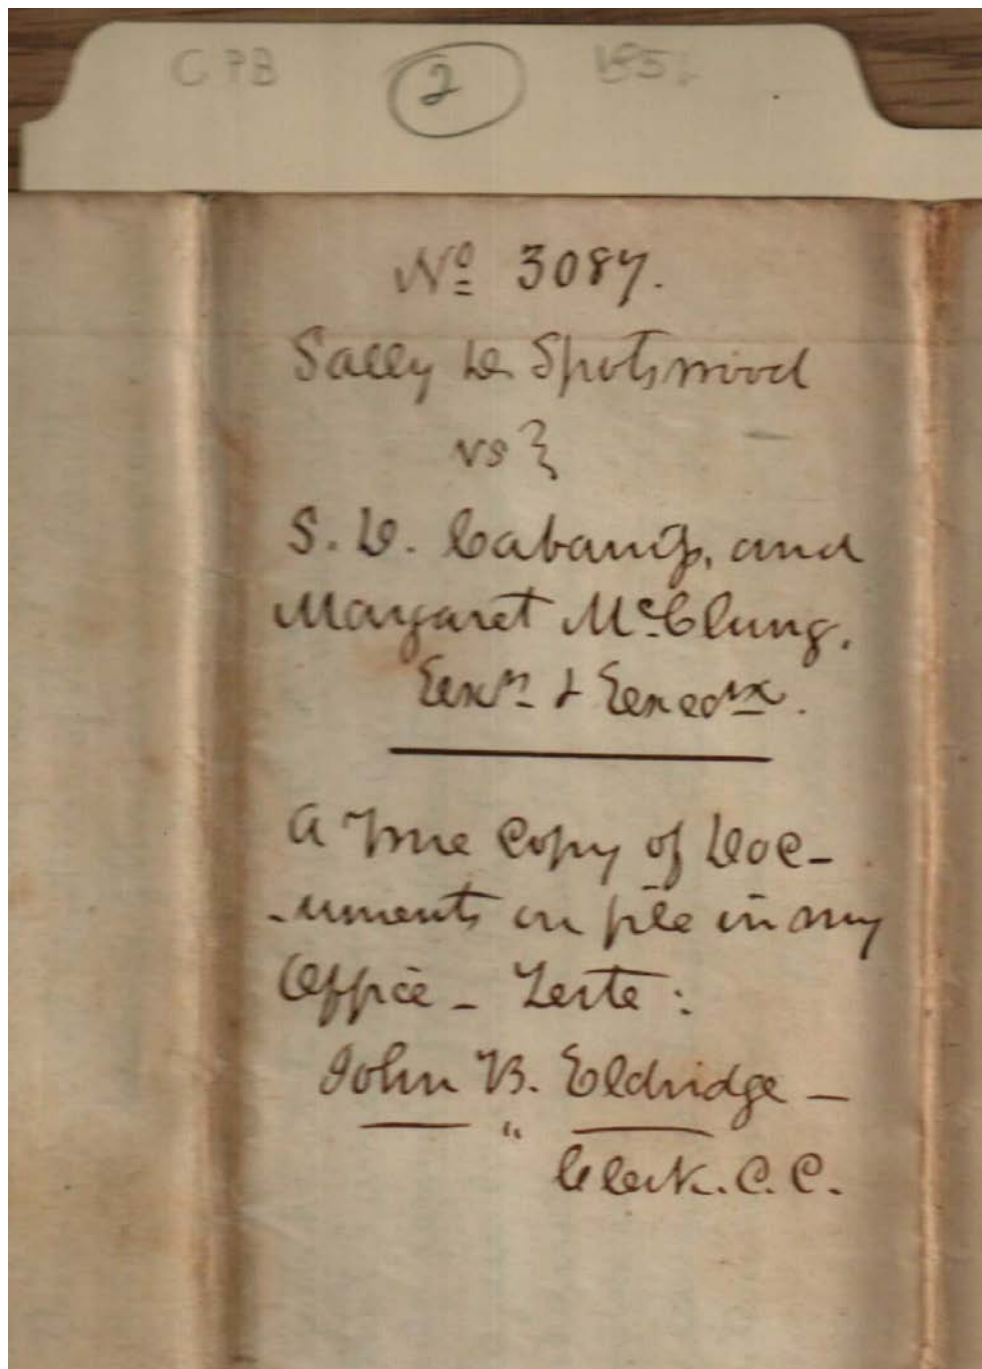 C73 2 1851
No 3087.
Sally D. Spotswood
vs }
S. D. Cabaniss, and
Margaret McClung.
Exr & Execrx.
A True Copy of Doc-
-uments on file in my
Office - Teste:
John B. Eldridge -
"
Clerk. C. C.